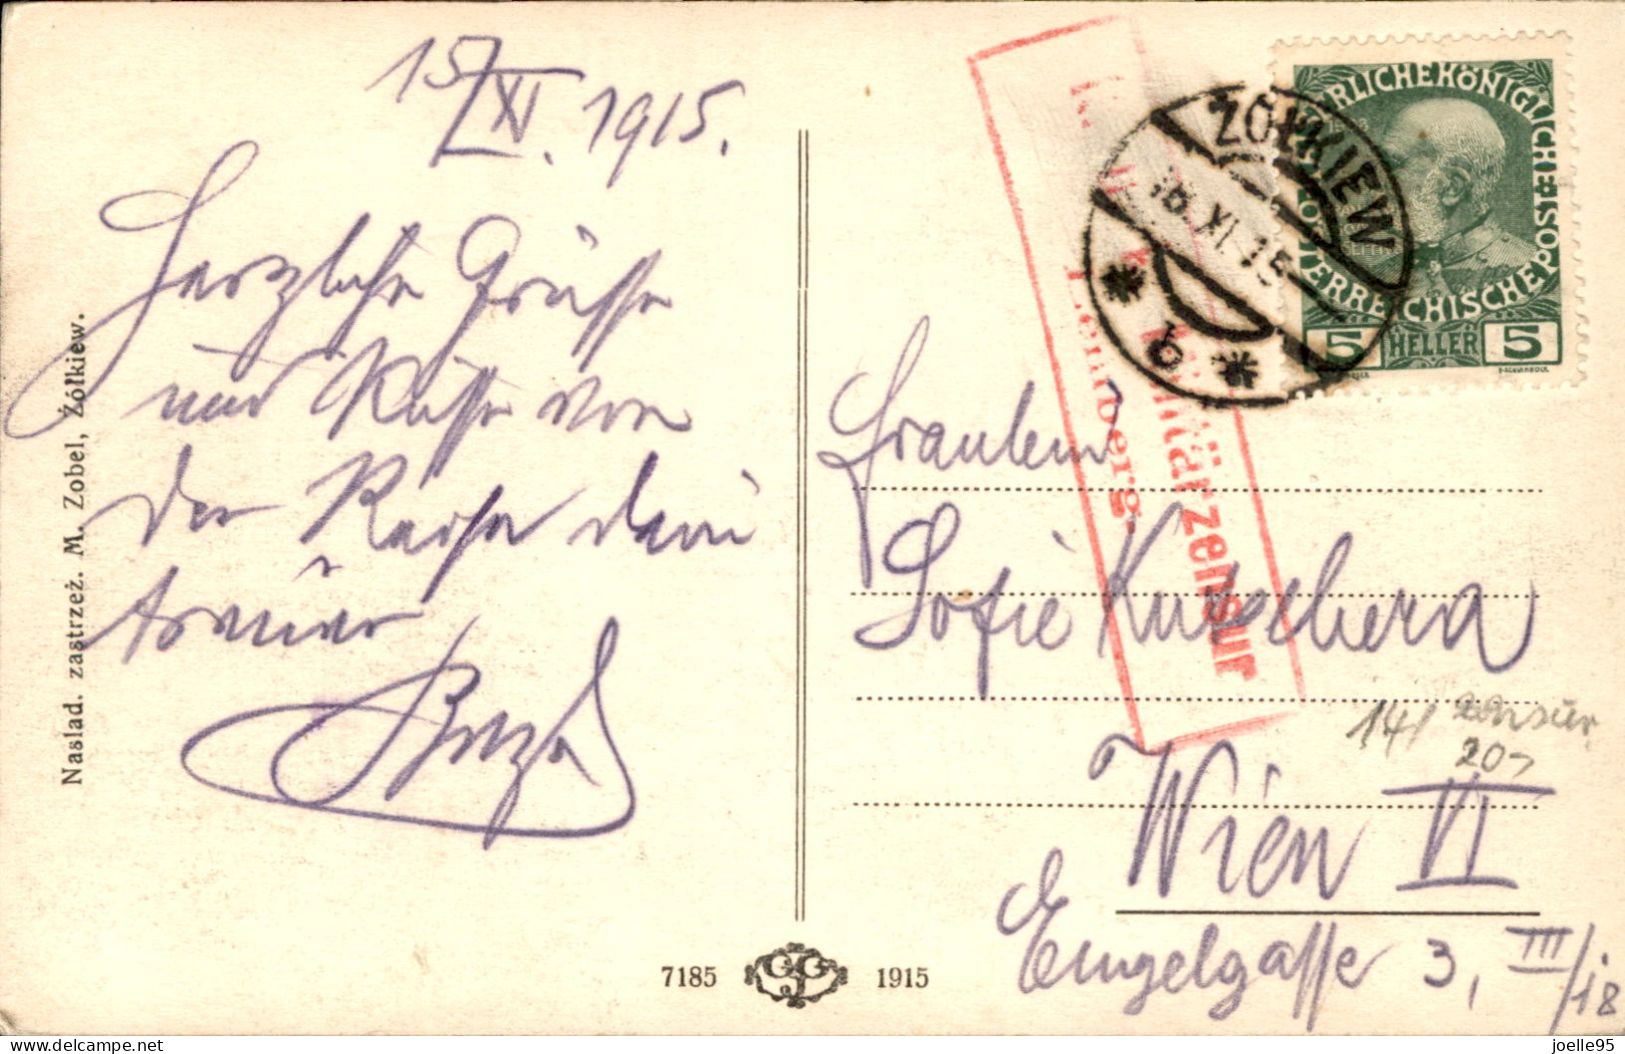 15/XI. 1915.
Herzliche Grüsse
und Küsse von
der Reise dein
Naslad. zastrzeż. M. Zobel, Żółkiew.
7185 1915
K. u. k. Militärzensur
Lemberg.
ŻÓŁKIEW
16. XI. 15
b
KAISERLICHE KÖNIGLICHE
ÖSTERREICHISCHE POST
5 HELLER 5
Fräulein
Sofie Kutschera
14/ zensur
20-
Wien VI
Engelgasse 3, III/18
joelle95